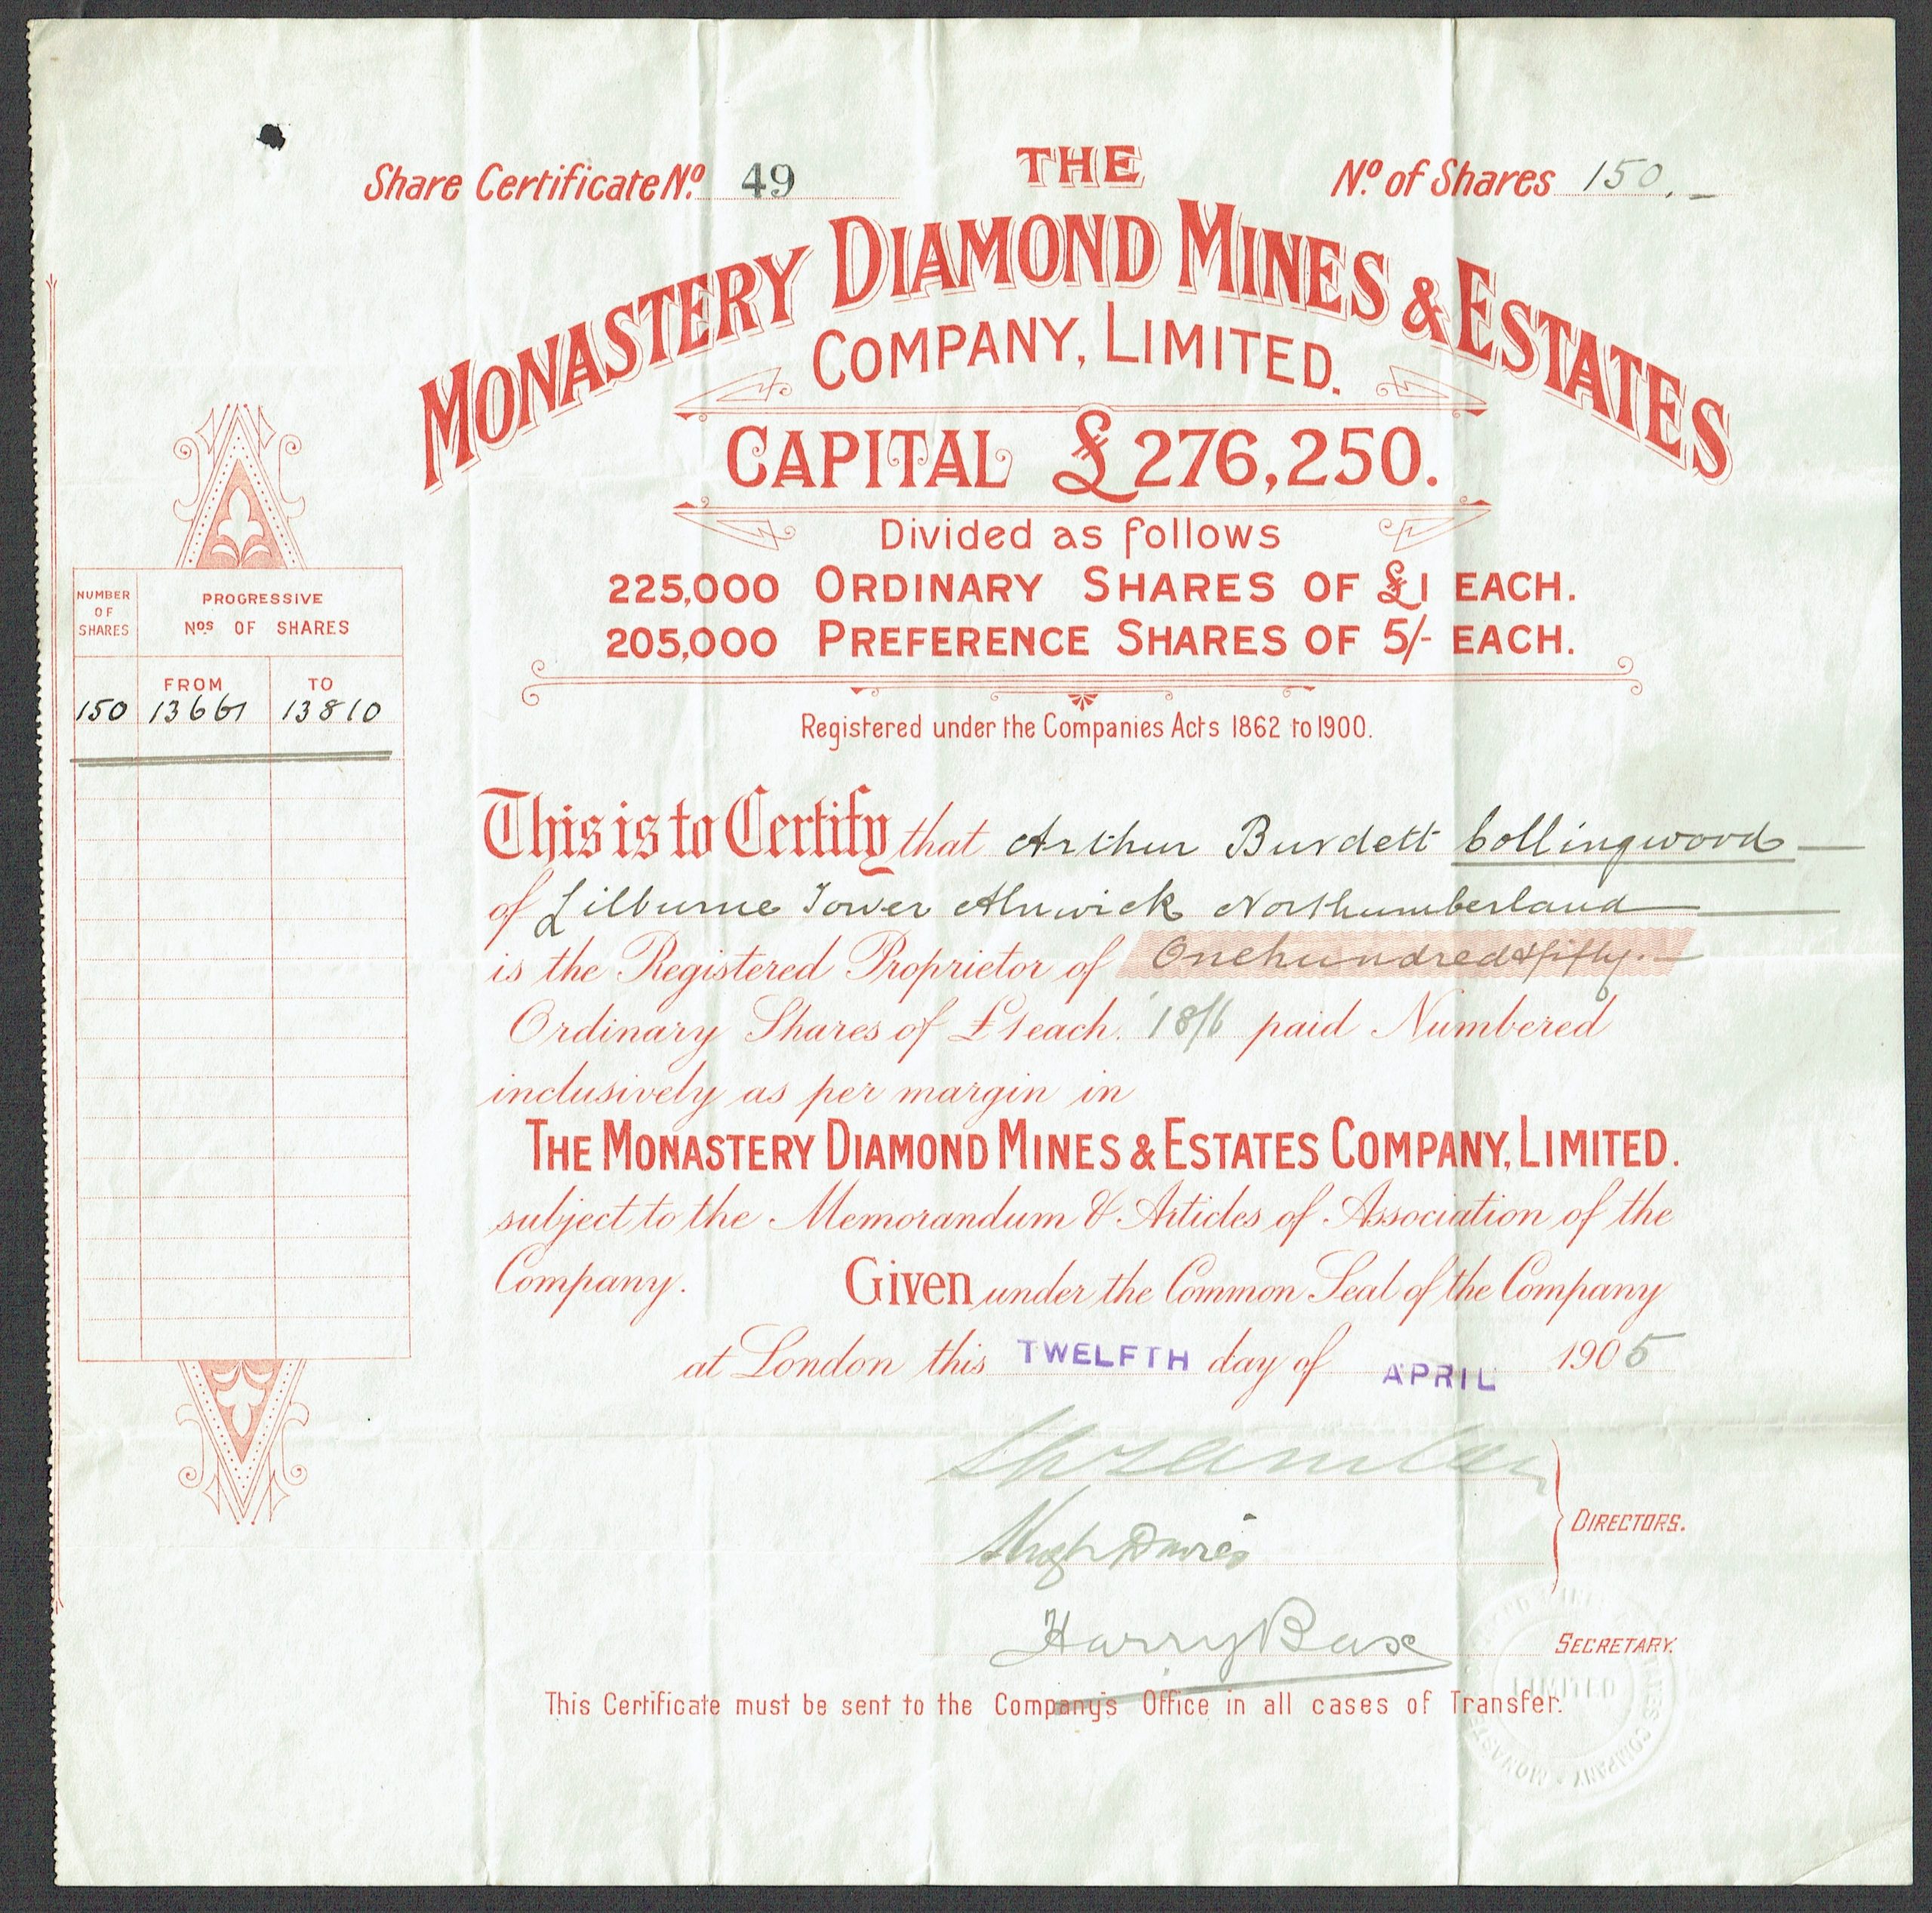 Share Certificate No. 49
THE
No. of Shares 150.
MONASTERY DIAMOND MINES & ESTATES
COMPANY, LIMITED.
CAPITAL £276,250.
Divided as follows
225,000 ORDINARY SHARES OF £1 EACH.
205,000 PREFERENCE SHARES OF 5/- EACH.
Registered under the Companies Acts 1862 to 1900.
NUMBER OF SHARES
PROGRESSIVE
Nos OF SHARES
FROM TO
150 13661 13810
This is to Certify that Arthur Burdett Collingwood
of Lilburne Tower Alnwick Northumberland
is the Registered Proprietor of One hundred & fifty.
Ordinary Shares of £1 each. 18/6 paid Numbered
inclusively as per margin in
THE MONASTERY DIAMOND MINES & ESTATES COMPANY, LIMITED.
subject to the Memorandum & Articles of Association of the
Company. Given under the Common Seal of the Company
at London this TWELFTH day of APRIL 1905
Hugh Davies
DIRECTORS.
Harry Bax
SECRETARY.
This Certificate must be sent to the Company's Office in all cases of Transfer.
LIMITED